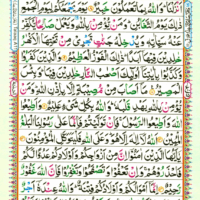 اَنْزَلْنَا وَاللّٰهُ بِمَا تَعْمَلُوْنَ خَبِيْرٌ يَوْمَ يَجْمَعُكُمْ لِيَوْمِ الْجَمْعِ
ذٰلِكَ يَوْمُ التَّغَابُنِ وَمَنْ يُّؤْمِنْۢ بِاللّٰهِ وَيَعْمَلْ صَالِحًا يُّكَفِّرْ
عَنْهُ سَيِّاٰتِهٖ وَيُدْخِلْهُ جَنّٰتٍ تَجْرِيْ مِنْ تَحْتِهَا الْاَنْهٰرُ
خٰلِدِيْنَ فِيْهَاۤ اَبَدًا ذٰلِكَ الْفَوْزُ الْعَظِيْمُ وَالَّذِيْنَ كَفَرُوْا
وَكَذَّبُوْا بِاٰيٰتِنَاۤ اُولٰٓئِكَ اَصْحٰبُ النَّارِ خٰلِدِيْنَ فِيْهَا وَبِئْسَ
الْمَصِيْرُ مَاۤ اَصَابَ مِنْ مُّصِيْبَةٍ اِلَّا بِاِذْنِ اللّٰهِ وَمَنْ
يُّؤْمِنْۢ بِاللّٰهِ يَهْدِ قَلْبَهٗ وَاللّٰهُ بِكُلِّ شَيْءٍ عَلِيْمٌ وَاَطِيْعُوا
اللّٰهَ وَاَطِيْعُوا الرَّسُوْلَ فَاِنْ تَوَلَّيْتُمْ فَاِنَّمَا عَلٰى رَسُوْلِنَا الْبَلٰغُ
الْمُبِيْنُ اَللّٰهُ لَاۤ اِلٰهَ اِلَّا هُوَ وَعَلَى اللّٰهِ فَلْيَتَوَكَّلِ الْمُؤْمِنُوْنَ
يٰۤاَيُّهَا الَّذِيْنَ اٰمَنُوْۤا اِنَّ مِنْ اَزْوَاجِكُمْ وَاَوْلَادِكُمْ عَدُوًّا
لَّكُمْ فَاحْذَرُوْهُمْ وَاِنْ تَعْفُوْا وَتَصْفَحُوْا وَتَغْفِرُوْا فَاِنَّ اللّٰهَ غَفُوْرٌ
رَّحِيْمٌ اِنَّمَاۤ اَمْوَالُكُمْ وَاَوْلَادُكُمْ فِتْنَةٌ وَاللّٰهُ عِنْدَهٗۤ اَجْرٌ